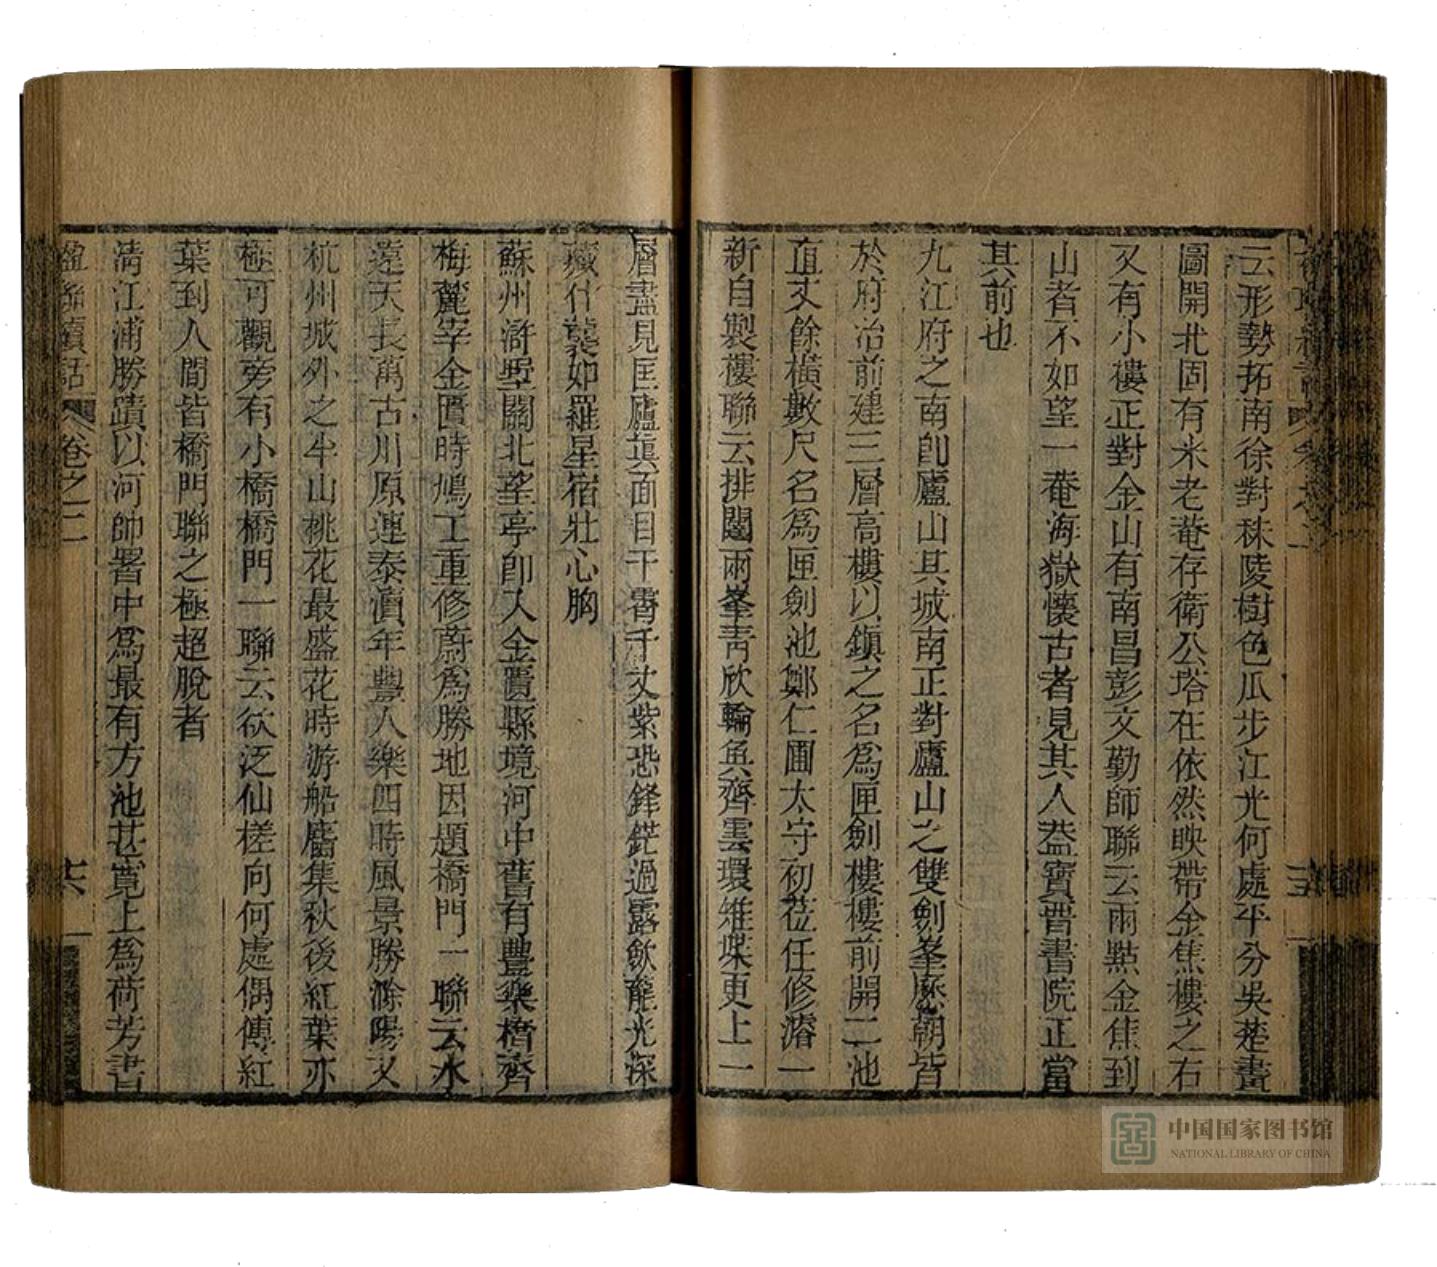 云形勢拓南徐對秣陵樹色瓜步江光何處平分吳楚畫
圖開北固有米老菴存衛公塔在依然映帶金焦樓之右
又有小樓正對金山有南昌彭文勤師聯云雨點金焦到
山者不如望一菴海嶽懷古者見其人葢寶晋書院正當
其前也
九江府之南卽廬山其城南正對廬山之雙劍峯歷朝皆
於府冶前建三層高樓以鎮之名爲匣劍樓樓前開二池
直丈餘橫數尺名爲匣劍池鄭仁圃太守初莅任修濬一
新自製樓聯云排闥兩峯靑欣輪奐齊雲環雉堞更上一
層盡見匡廬眞面目干霄千丈紫恐鋒鋩過露歛龍光深
藏什襲如羅星宿壯心胸
蘇州滸墅關北望亭卽入金匱縣境河中舊有豐樂橋齊
梅麓宰金匱時鳩工重修蔚爲勝地因題橋門一聯云水
遠天長萬古川原連泰瀆年豐人樂四時風景勝滁陽又
杭州城外之半山桃花最盛花時游船麕集秋後紅葉亦
極可觀旁有小橋橋門一聯云欲泛仙槎向何處偶傳紅
葉到人間皆橋門聯之極超脫者
淸江浦勝蹟以河帥署中爲最有方池甚寬上爲荷芳書
楹聯續話
卷之二
十六
中国国家图书馆
NATIONAL LIBRARY OF CHINA